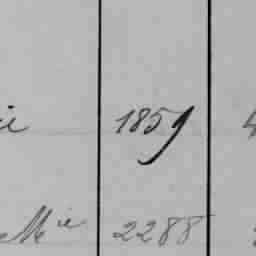 ie 1859 4
Mie 2288